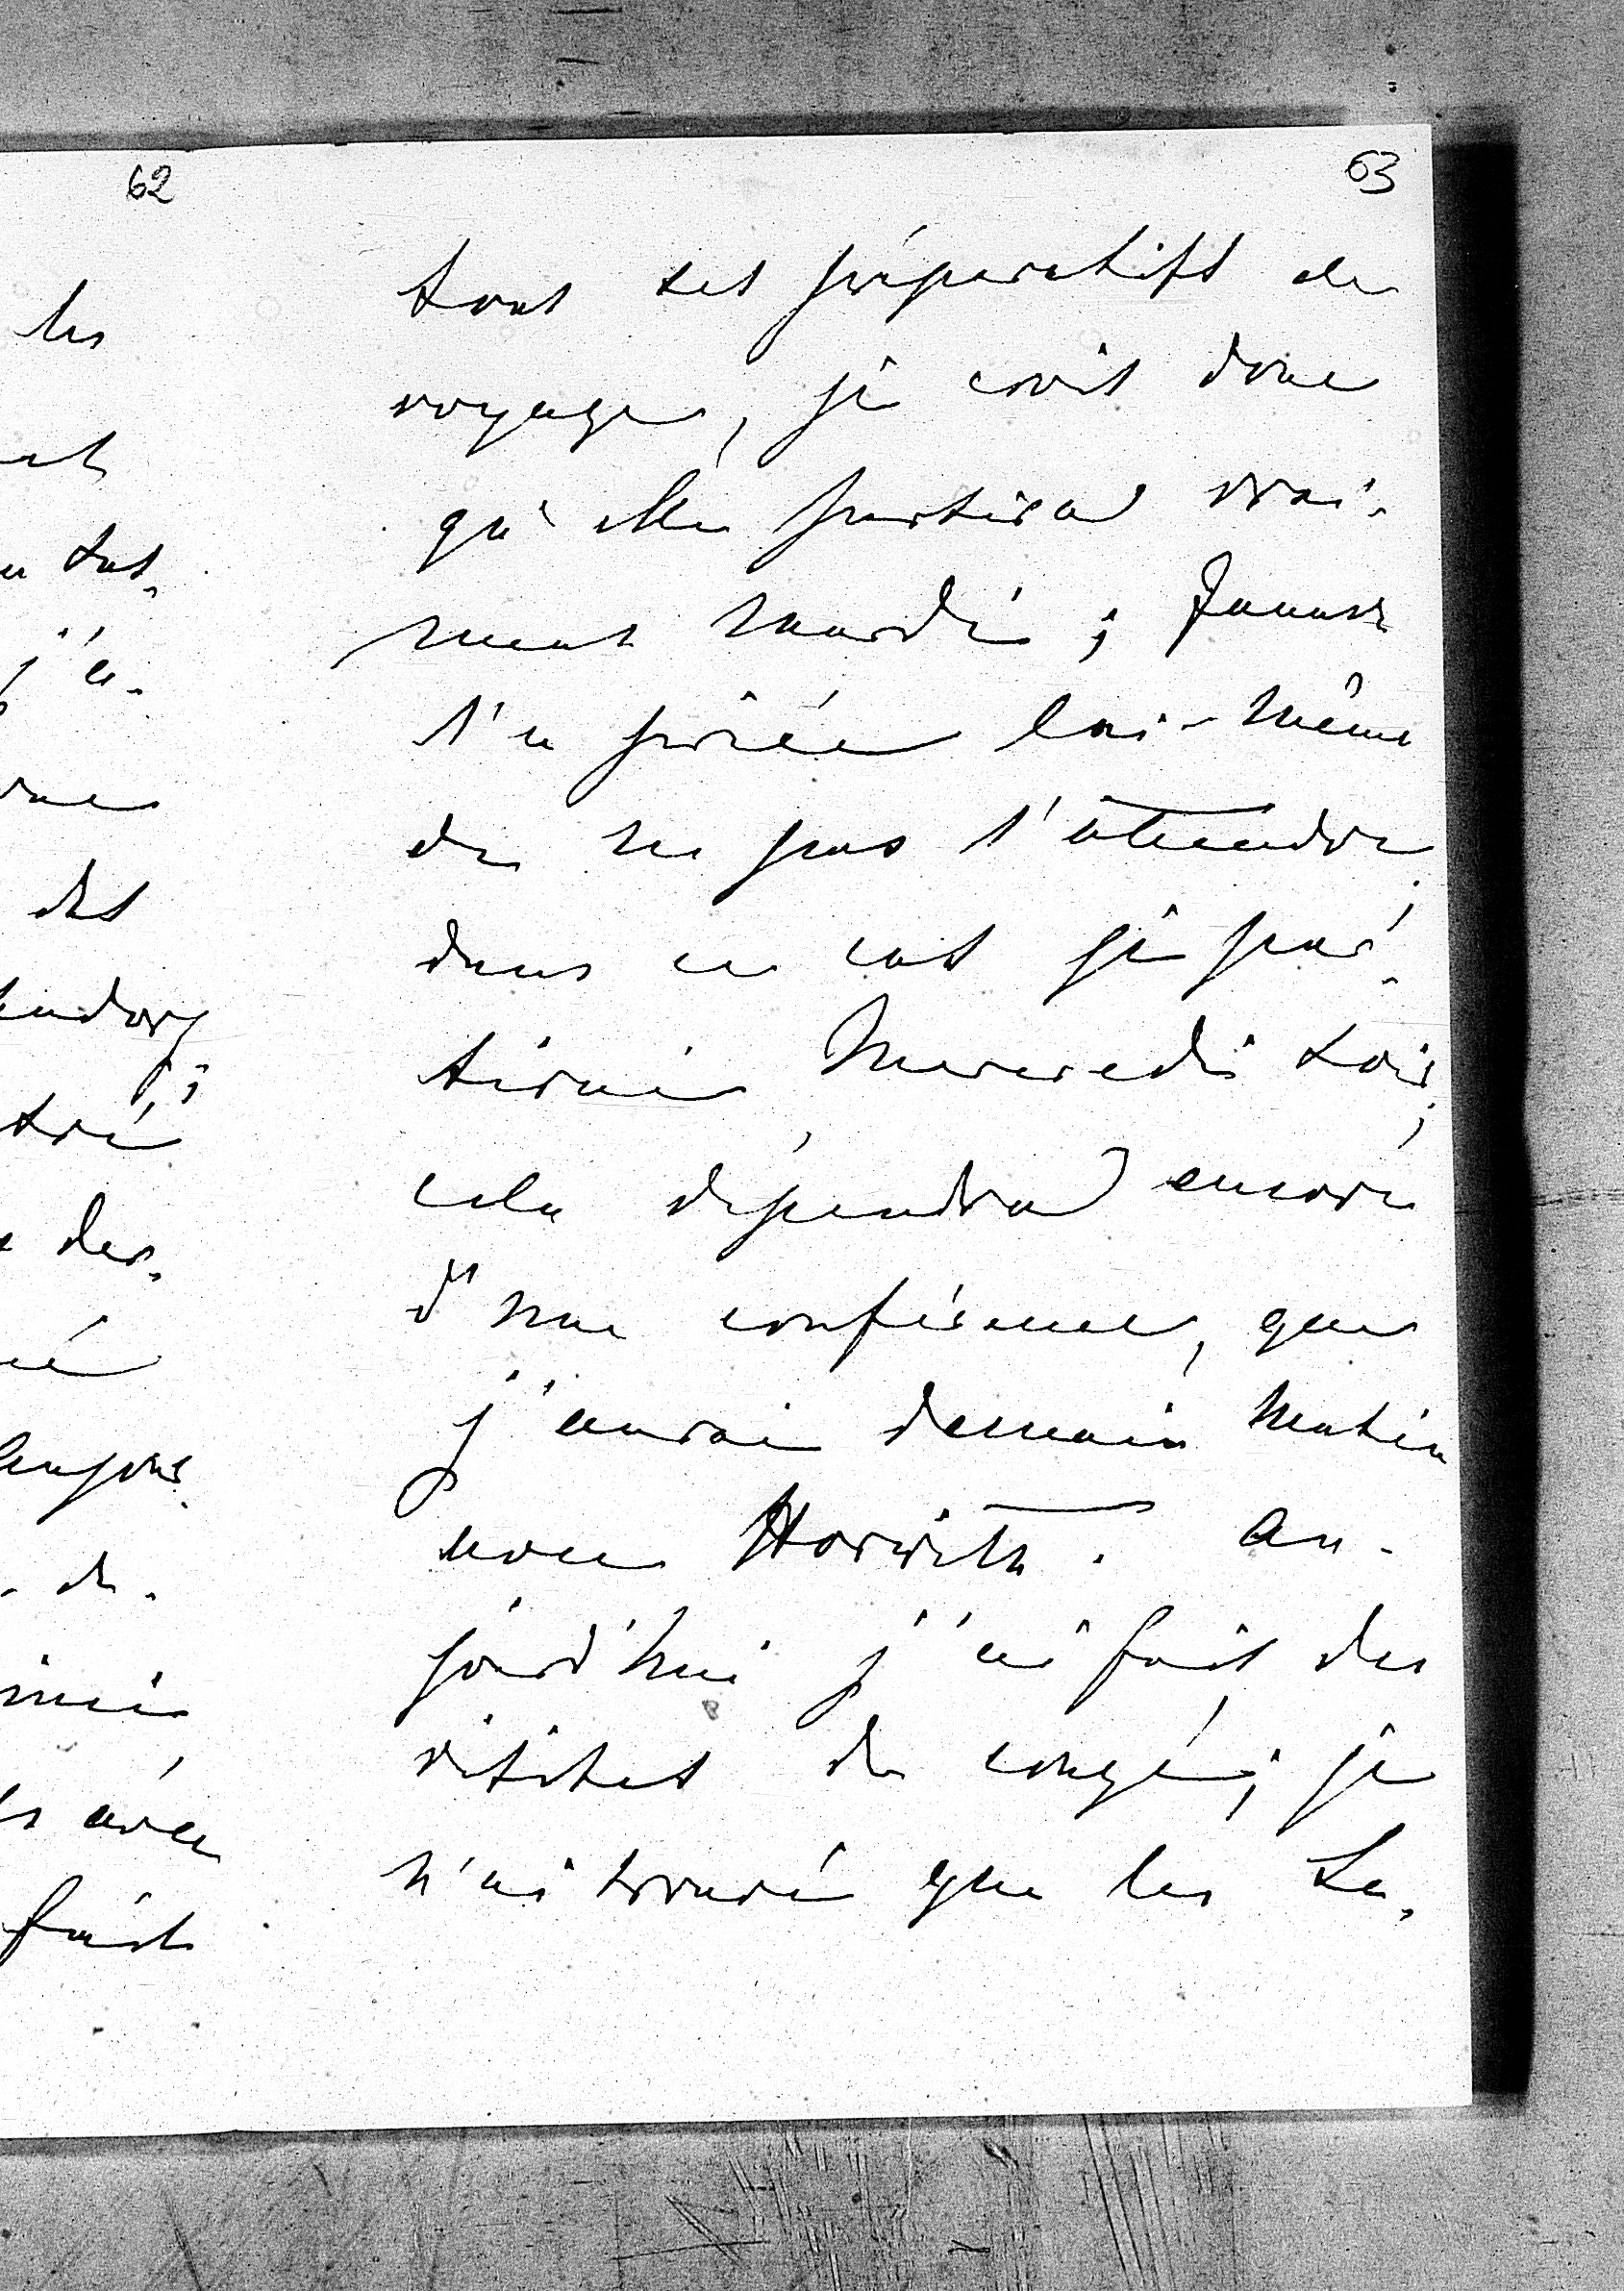 62
les
des
fait
63
tous ses préparatifs de
voyage, je crois donc
qu'elle partira vrai-
ment Mardi; Janasz
l'a priée lui-même
de ne pas l'attendre,
dans ce cas je par-
tirai Mercredi soir,
cela dépendra encore
d'une conférence, que
j'aurai demain matin
avec Horwitz. Au-
jourd'hui j'ai fait des
visites de congé; je
n'ai trouvé que les Le-